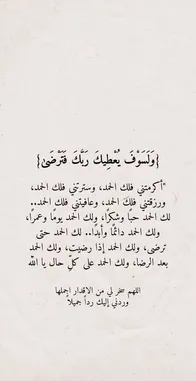 {وَلَسَوْفَ يُعْطِيكَ رَبُّكَ فَتَرْضَىٰ}
"أكرمتني فلك الحمد، وسترتني فلك الحمد،
ورزقتني فلك الحمد، وعافيتني فلك الحمد..
لك الحمد حبًا وشكرًا، ولك الحمد يومًا وعمرًا،
ولك الحمد دائمًا وأبدًا.. لك الحمد حتى
ترضى، ولك الحمد إذا رضيت، ولك الحمد
بعد الرضا، ولك الحمد على كلّ حال يا الله
اللهم سخر لي من الاقدار اجملها
وردني إليك رداً جميلاً